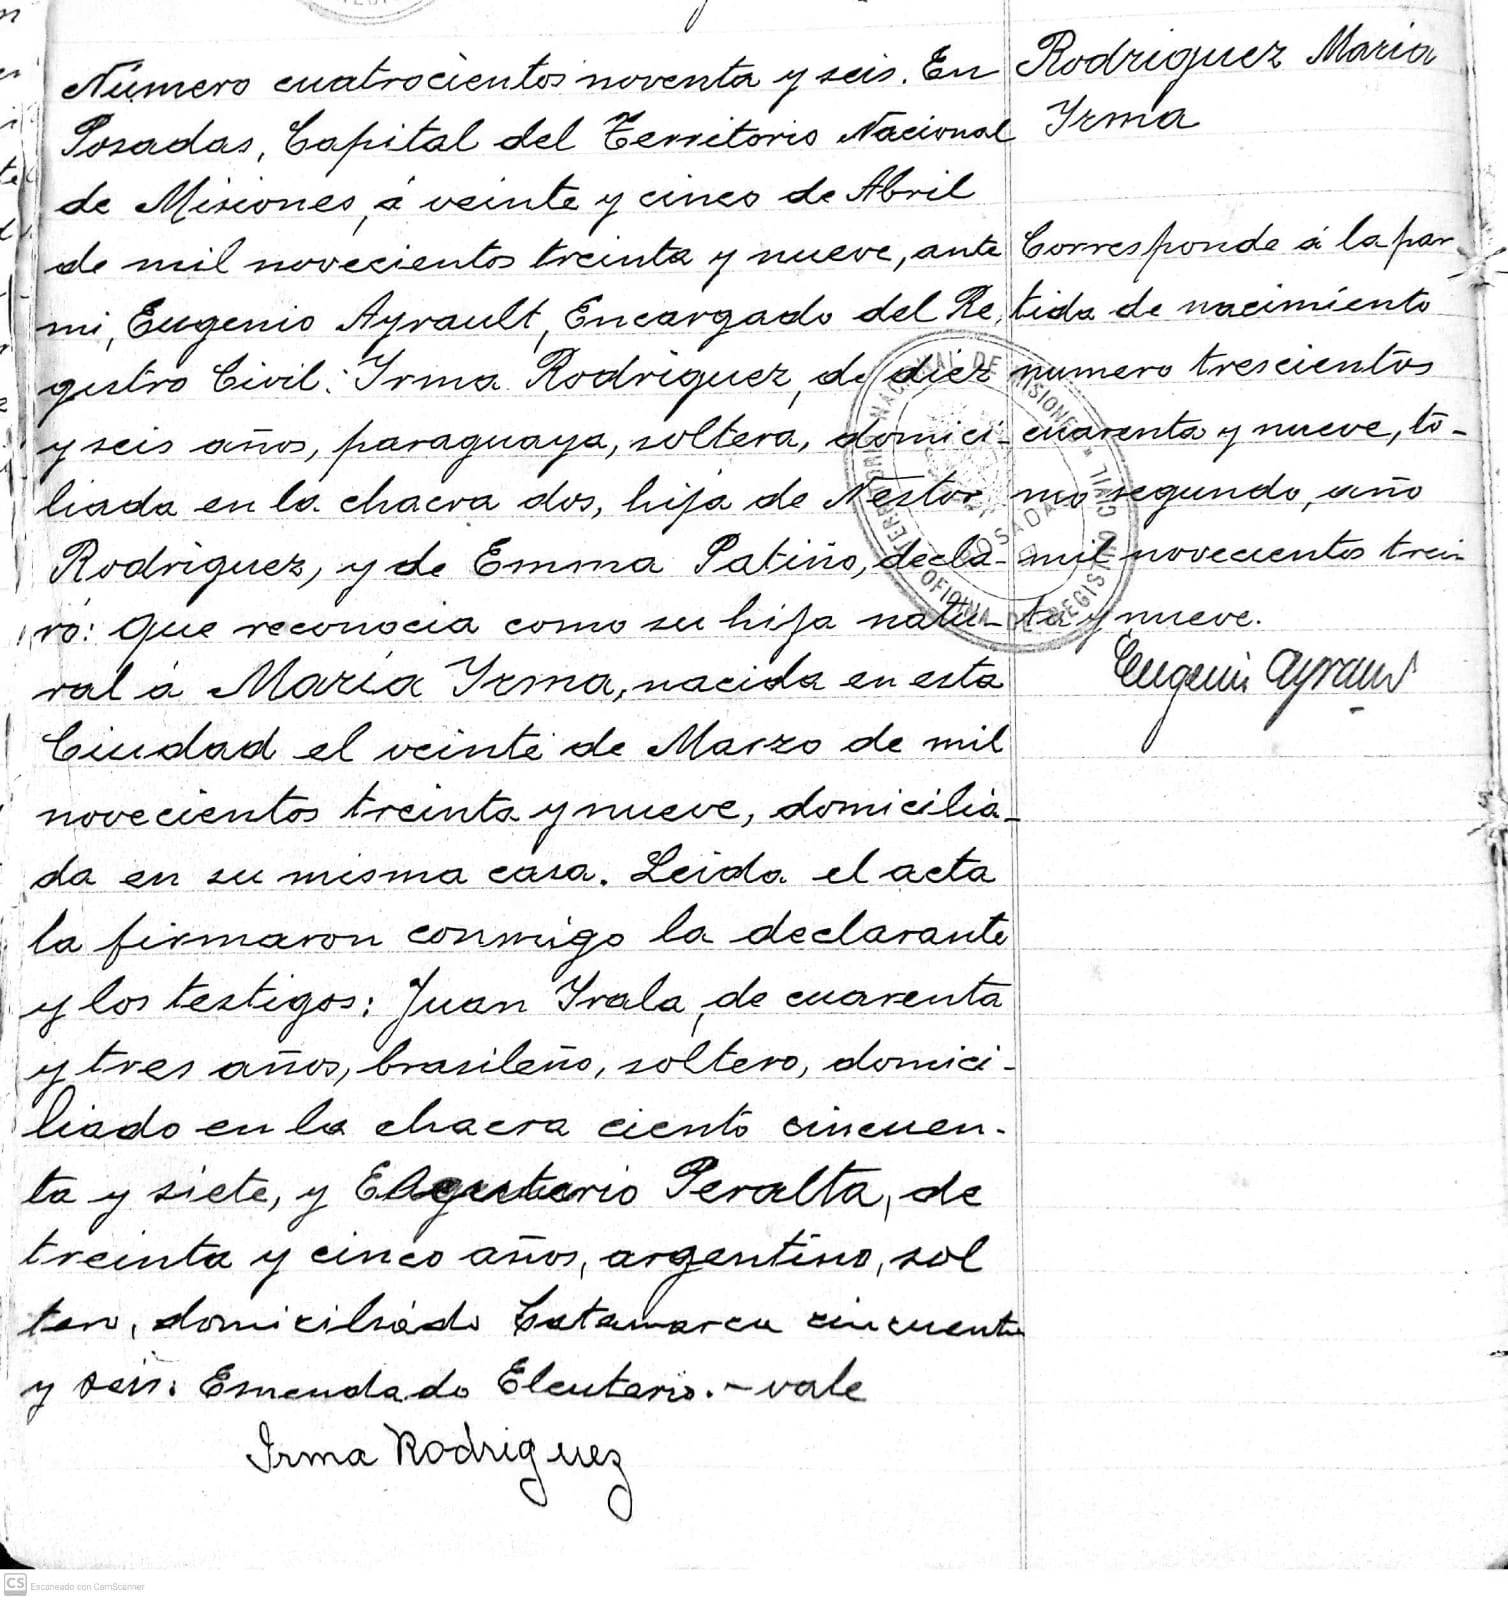 Número cuatrocientos noventa y seis. En
Posadas, Capital del Territorio Nacional
de Misiones, á veinte y cinco de Abril
de mil novecientos treinta y nueve, ante
mi, Eugenio Ayrault, Encargado del Re,
gistro Civil: Yrma Rodriguez, de diez
y seis años, paraguaya, soltera, domici-
liada en la chacra dos, hija de Nestor
Rodriguez, y de Emma Patiño, decla-
ró: que reconocia como su hija natu-
ral á María Yrma, nacida en esta
Ciudad el veinte de Marzo de mil
novecientos treinta y nueve, domicilia-
da en su misma casa. Leida el acta
la firmaron conmigo la declarante
y los testigos: Juan Yrala, de cuarenta
y tres años, brasileño, soltero, domici-
liado en la chacra ciento cincuen-
ta y siete, y Eleuterio Peralta, de
treinta y cinco años, argentino, sol
tero, domiciliado Catamarca cincuenta
y seis. Enmendado Eleuterio.-vale
Irma Rodriguez
Rodriguez Maria
Yrma
Corresponde á la par
tida de nacimiento
numero trescientos
cuarenta y nueve, to-
mo segundo, año
mil novecientos trein
ta y nueve.
Eugenio Ayrault
OFICINA DE REGISTRO CIVIL
TERRITORIO NACIONAL DE MISIONES
POSADAS
CS Escaneado con CamScanner